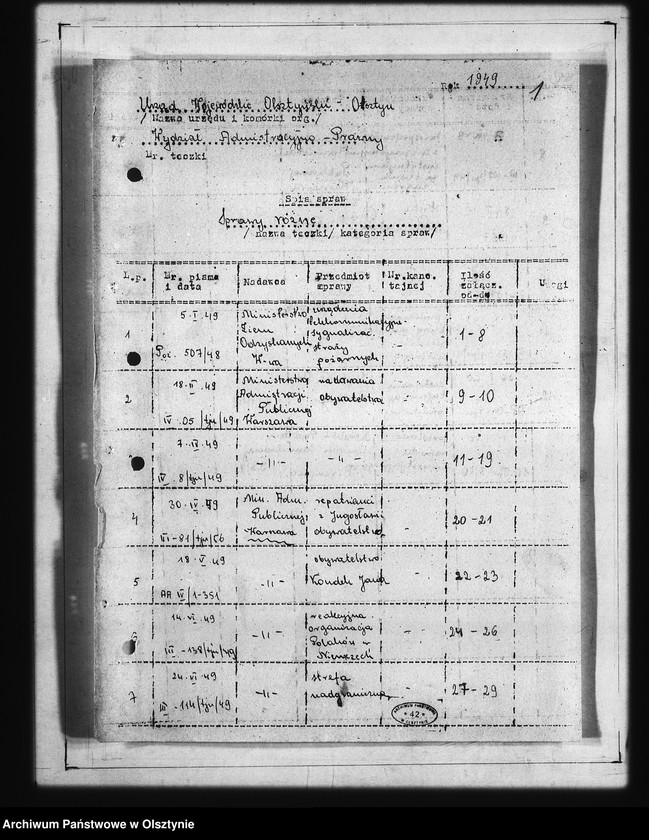 Rok 1949
1
Urząd Wojewódzki Olsztyński - Olsztyn
/ Nazwa urzędu i komórki org./
Wydział Administracyjno - Prawny
Nr. teczki
Spis spraw
Sprawy różne
/ nazwa teczki/ kategoria spraw/
L.p. Nr. pisma i data Nadawca Przedmiot sprawy Nr.kanc. tajnej Ilość załącz. od-do Uwagi
1
5 I 49
507/48
Ministerstwo
Ziem
Odzyskanych
W-wa
urządzenia
telekomunikacyjne
sygnalizac.
straży
pożarnych
-
1-8
2
18 II 49
IV .05/tjn/49
Ministerstwo
Administracji
Publicznej
Warszawa
nadawania
obywatelstwa
-
9-10
7 IV 49
IV .8/tjn/49
-||-
-||-
-
11-19
4
30 IV 49
III-81/tjn/56
Min. Adm.
Publicznej
Warszawa
repatrianci
z Jugosławii
obywatelstwo
-
20-21
5
18 V 49
AA IV/1-351
-||-
obywatelstwo
Kondek
-
22-23
6
14 VI 49
III -138/tjn/49
-||-
reakcyjna
organizacja
Polaków w
Niemczech
-
24-26
7
24 VI 49
III -114/tjn/49
-||-
strefa
nadgraniczna
-
27-29
ARCHIWUM PAŃSTWOWE
* 42 *
w OLSZTYNIE
Archiwum Państwowe w Olsztynie